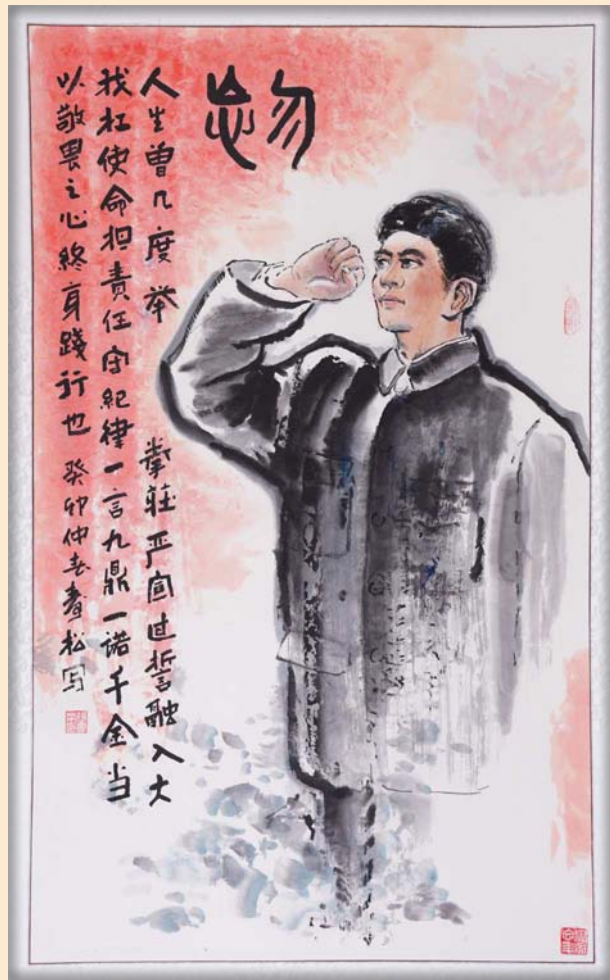 勿忘
人生曾几度举拳莊严宣过誓融入大
我扛使命担责任守紀律一言九鼎一诺千金当
以敬畏之心終身踐行也 癸卯仲春松写